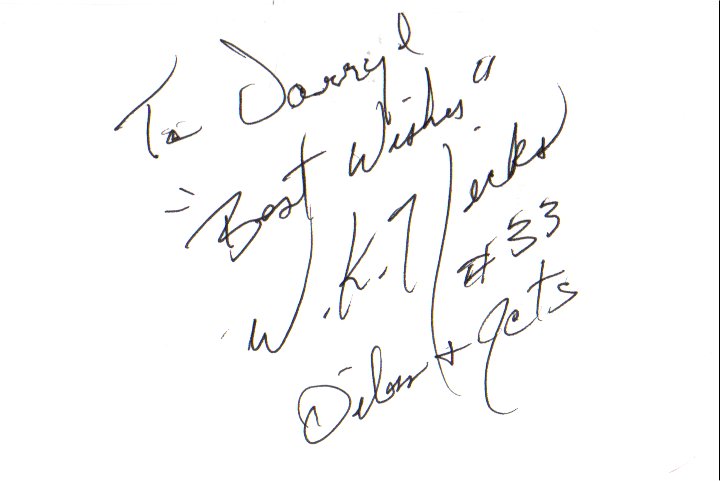 To Darryl
"Best Wishes"
W.K. Hicks
#33
Oilers + Jets